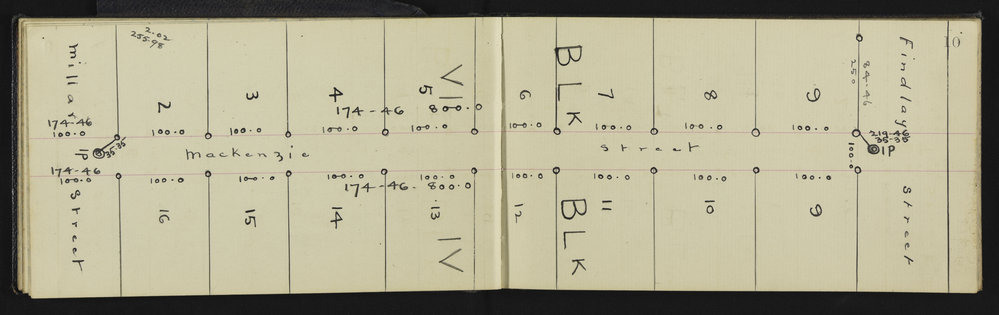 10
2.02
255.98
Millar Street
2
3
4
5
VI
6
BLK
7
8
9
Findlay Street
84-46
250
174-46
100.0
100.0
100.0
100.0
174-46
800.0
100.0
100.0
100.0
100.0
100.0
219-46
35-35
IP
35-35
Mackenzie Street
IP
100.0
174-46
100.0
100.0
100.0
100.0
174-46- 800.0
100.0
100.0
100.0
100.0
16
15
14
13
IV
12
BLK
11
10
9